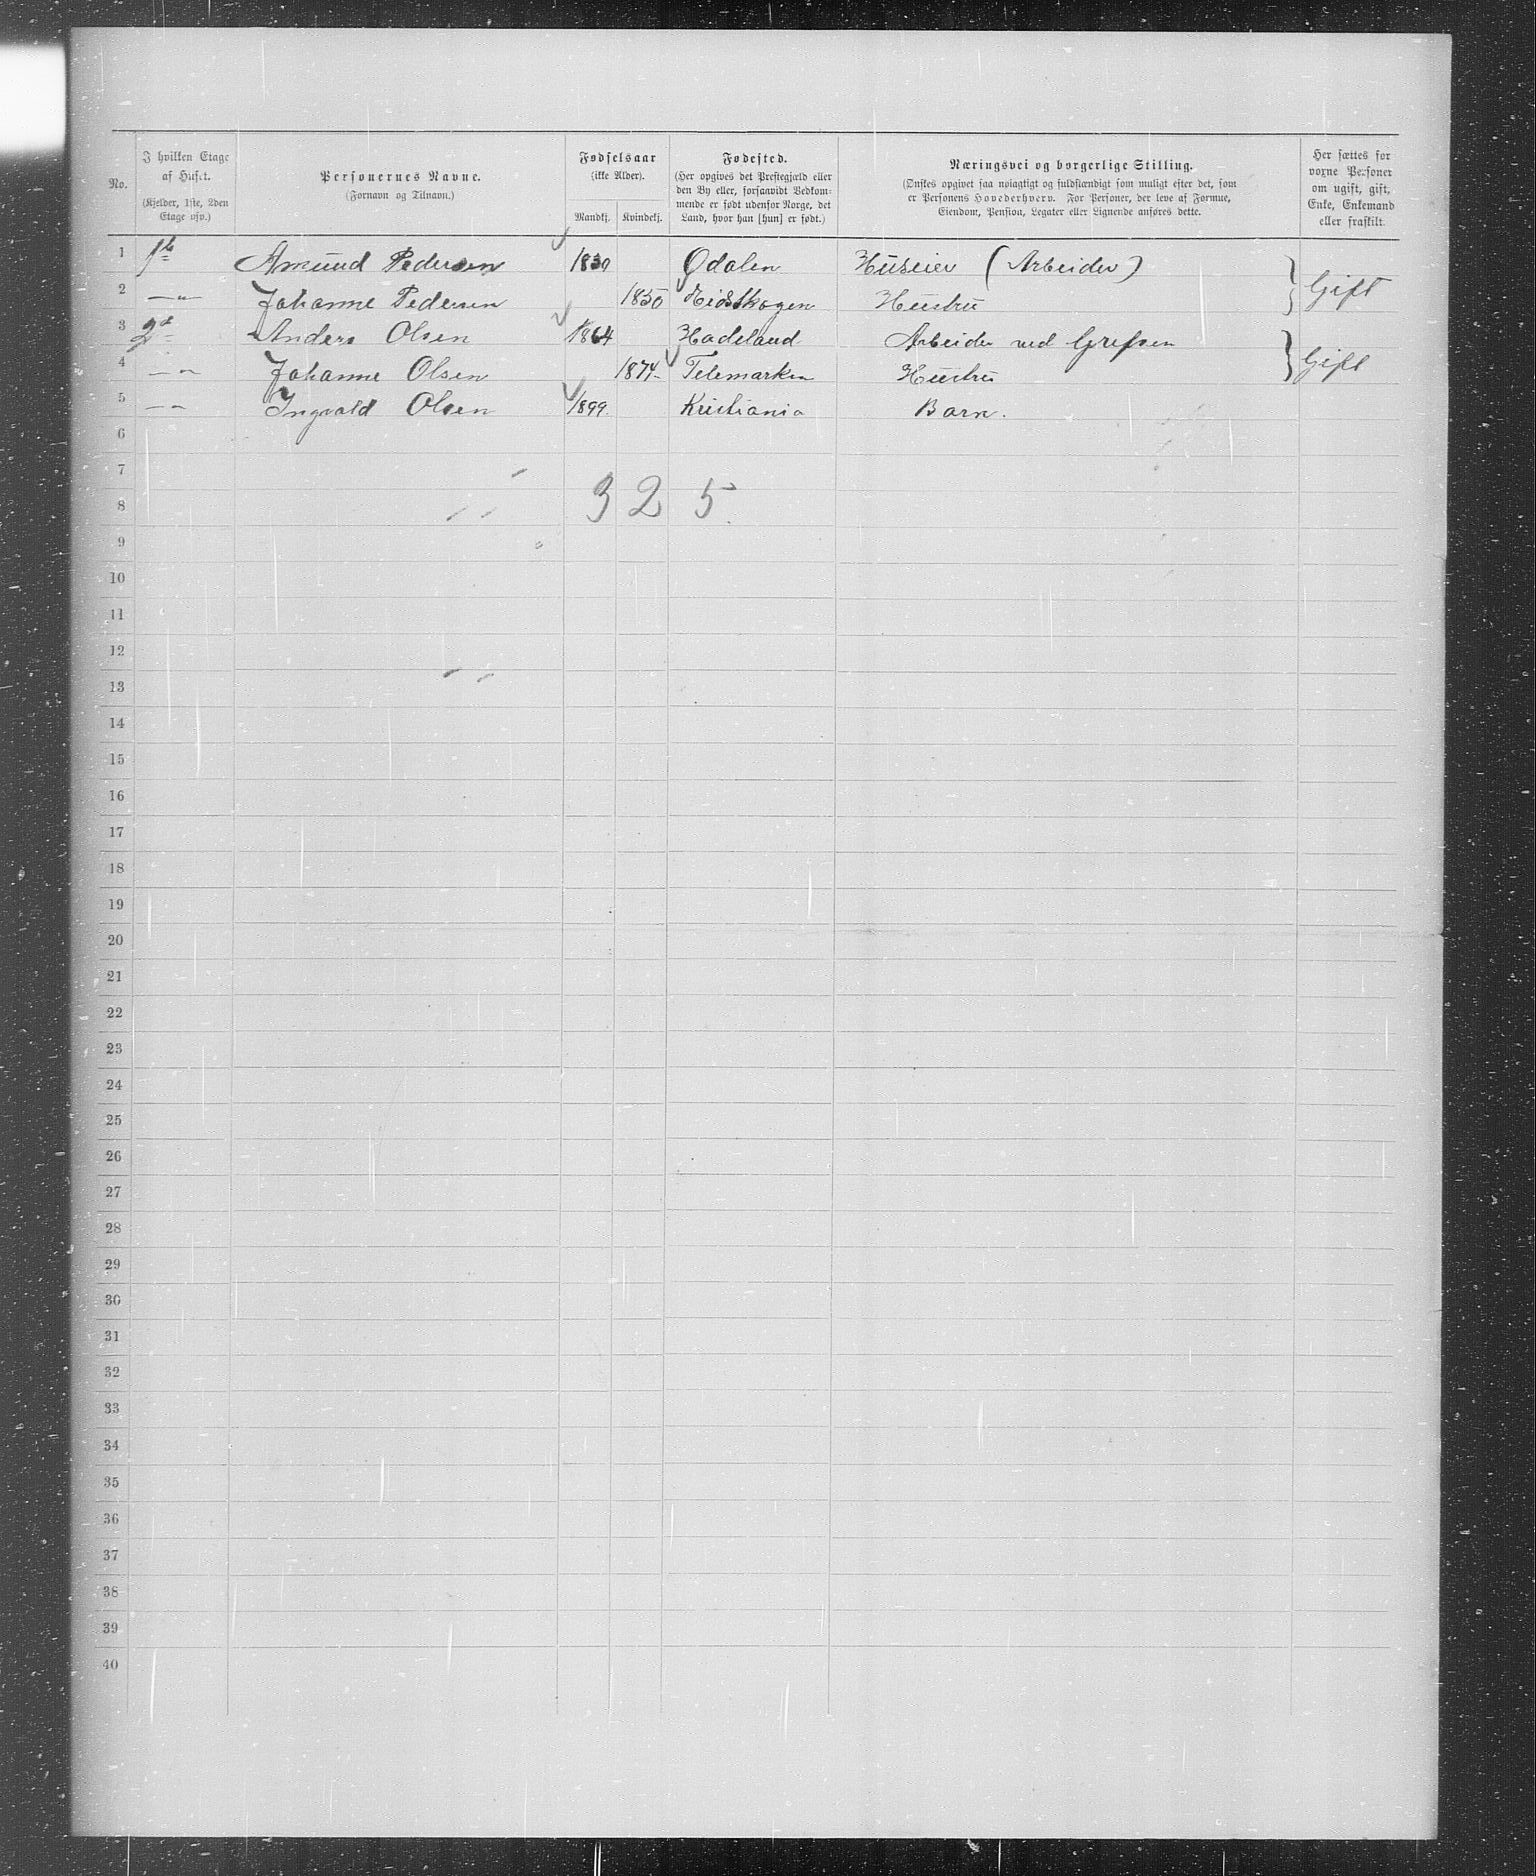 No.
I hvilken Etage af Huset.
(Kjelder, 1ste, 2den Etage osv.)
Personernes Navne.
(Fornavn og Tilnavn.)
Fødselsaar
(ikke Alder).
Mandkj. Kvindekj.
Fødested.
(Her opgives det Prestegjæld eller
den By eller, forsaavidt Vedkom-
mende er født udenfor Norge, det
Land, hvor han [hun] er født.)
Næringsvei og borgerlige Stilling.
(Ønskes opgivet saa nøiagtigt og fuldstændigt som muligt efter det, som
er Personens Hovederhverv. For Personer, der leve af Formue,
Eiendom, Pension, Legater eller Lignende anføres dette.
Her sættes for
voxne Personer
om ugift, gift,
Enke, Enkemand
eller fraskilt.
1 1ste Amund Pedersen 1830 Odalen Huseier (Arbeider) } Gift
2 —"— Johanne Pedersen 1850 Hustru
3 2d Anders Olsen 1864 Hadeland Arbeider ved Grefsen } Gift
4 —"— Johanne Olsen 1874 Telemarken Hustru
5 —"— Ingvald Olsen 1899 Kristiania Barn.
6
7
8 3 2 5.
9
10
11
12
13
14
15
16
17
18
19
20
21
22
23
24
25
26
27
28
29
30
31
32
33
34
35
36
37
38
39
40